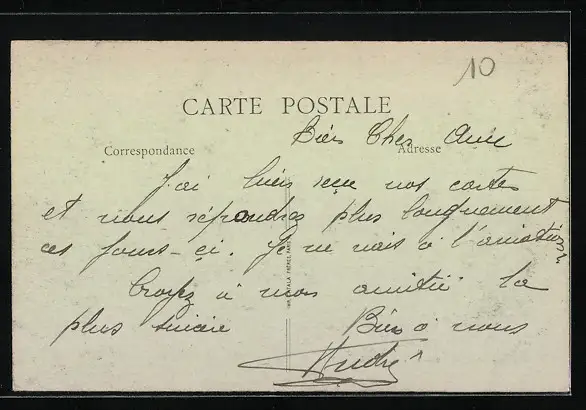 10
CARTE POSTALE
Bien Cher Ami
Correspondance
Adresse
J'ai bien reçu vos cartes
et vous répondrai plus longuement
ces jours-ci. Je ne vais à l'aviation
Croyez à mon amitié la
plus sincère
Bien à vous
André